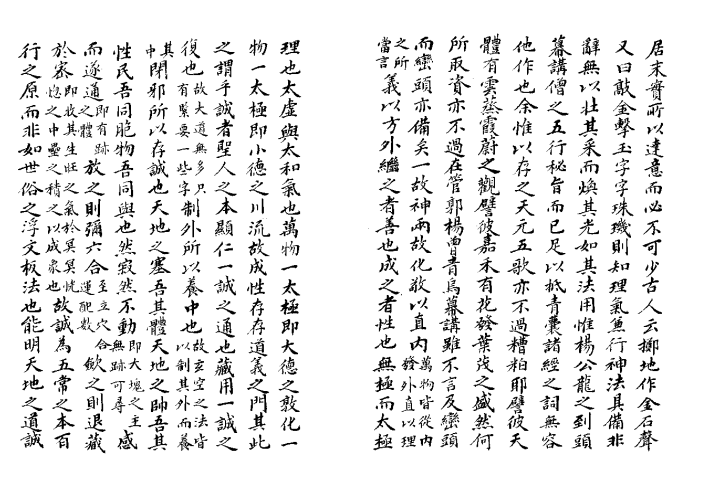 居末實所以達意而必不可少古人云擲地作金石聲
又曰敲金擊玉字字珠璣則知理氣並行神法具備非
辭無以壯其采而煥其光如其法用惟楊公龍之到頭
幕講僧之五行秘旨而已足以抵青囊諸經之詞無容
他作也余惟以存之天元五歌亦不過糟粕耶譬彼天
體有雲蒸霞蔚之觀譬彼嘉禾有花發葉茂之盛然何
所取資亦不過在管郭楊曾青烏幕講雖不言及巒頭
而巒頭亦備矣一故神兩故化敬以直內萬物皆從內發外直以理
之所當言義以方外繼之者善也成之者性也無極而太極
理也太虛與太和氣也萬物一太極即大德之敦化一
物一太極即小德之川流故成性存存道義之門其此
之謂乎誠者聖人之本顯仁一誠之通也藏用一誠之
復也故大道無多只有緊要一些字制外所以養中也故玄空之法皆以制其外而養
其中閑邪所以存誠也天地之塞吾其體天地之帥吾其
性民吾同胞物吾同與也然寂然不動即大塊之主無跡可尋感
而遂通即有跡之體放之則彌六合至立穴合運配數斂之則退藏
於密即收其生旺之氣於冥冥恍惚之中壘之積之以成象也故誠為五常之本百
行之原而非如世俗之浮文板法也能明天地之道誠